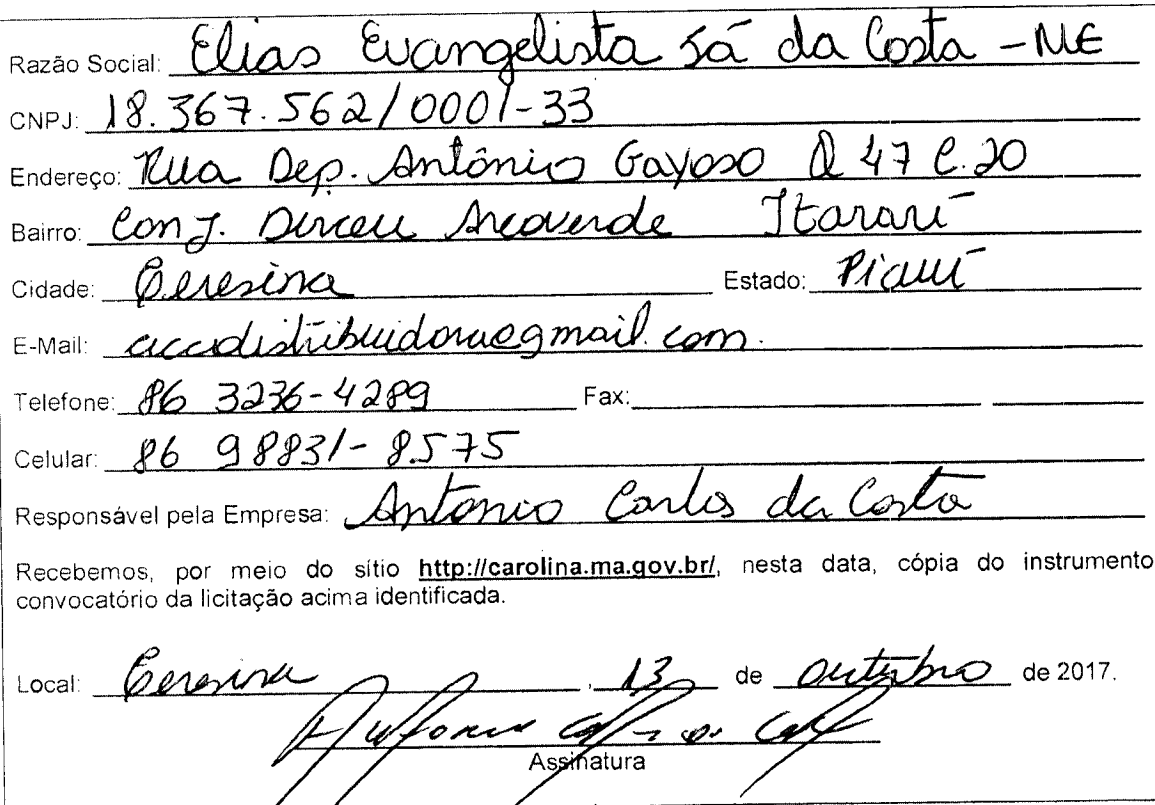 Razão Social: Elias Evangelista Sá da Costa - ME
CNPJ: 18.367.562/0001-33
Endereço: Rua Dep. Antônio Gayoso Q 47 C. 20
Bairro: Conj. Dirceu Arcoverde Itararé
Cidade: Teresina Estado: Piauí
E-Mail: accdistribuidora@gmail.com.
Telefone: 86 3236-4289 Fax:
Celular: 86 98831-8575
Responsável pela Empresa: Antonio Carlos da Costa
Recebemos, por meio do sítio http://carolina.ma.gov.br/, nesta data, cópia do instrumento
convocatório da licitação acima identificada.
Local: Teresina, 13 de outubro de 2017.
Assinatura